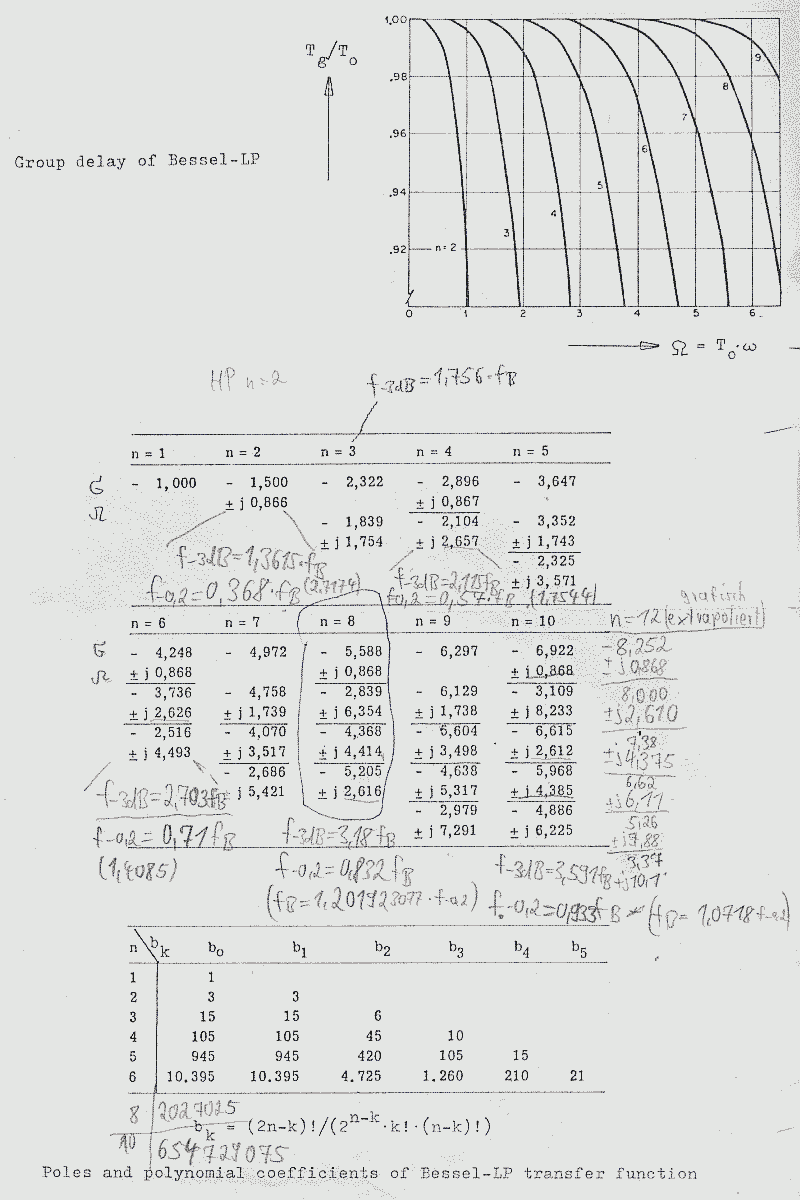 1.00
.98
.96
.94
.92
T_g/T_o
Group delay of Bessel-LP
n=2
3
4
5
6
7
8
9
0 1 2 3 4 5 6
Ω = T_o·ω
HP n=2
f-3dB=1,756·fB
n = 1 n = 2 n = 3 n = 4 n = 5
G - 1,000 - 1,500 - 2,322 - 2,896 - 3,647
Ω ± j 0,866 ± j 0,867
- 1,839 - 2,104 - 3,352
± j 1,754 ± j 2,657 ± j 1,743
- 2,325
± j 3,571
f-3dB=1,3615·fB
f-0,2=0,368·fB (2,7174)
f-3dB=2,115fB
f0,2=0,57·fB (1,7544)
grafisch
n=12 (extrapoliert)
n = 6 n = 7 n = 8 n = 9 n = 10
G - 4,248 - 4,972 - 5,588 - 6,297 - 6,922 -8,252
Ω ± j 0,868 ± j 0,868 ± j 0,868 ± j 0,868
- 3,736 - 4,758 - 2,839 - 6,129 - 3,109 8,000
± j 2,626 ± j 1,739 ± j 6,354 ± j 1,738 ± j 8,233 ± j 2,610
- 2,516 - 4,070 - 4,368 - 5,604 - 6,615 7,38
± j 4,493 ± j 3,517 ± j 4,414 ± j 3,498 ± j 2,612 ± j 4,375
- 2,686 - 5,205 - 4,638 - 5,968 6,62
± j 5,421 ± j 2,616 ± j 5,317 ± j 4,385 ± j 6,11
- 2,979 - 4,886 5,26
± j 7,291 ± j 6,225 ± j 7,88
3,37
+j10,1
f-3dB=2,703fB
f-0,2= 0,71fB
(1,4085)
f-3dB=3,18fB
f-0,2= 0,832fB
(fB=1,201923077·f-0,2)
f-3dB=3,591fB
f-0,2=0,933fB (fB= 1,0718f-0,2)
n b_k b_o b_1 b_2 b_3 b_4 b_5
1 1
2 3 3
3 15 15 6
4 105 105 45 10
5 945 945 420 105 15
6 10.395 10.395 4.725 1.260 210 21
8 2027025
b_k = (2n-k)!/(2^{n-k}·k!·(n-k)!)
10 654729075
Poles and polynomial coefficients of Bessel-LP transfer function